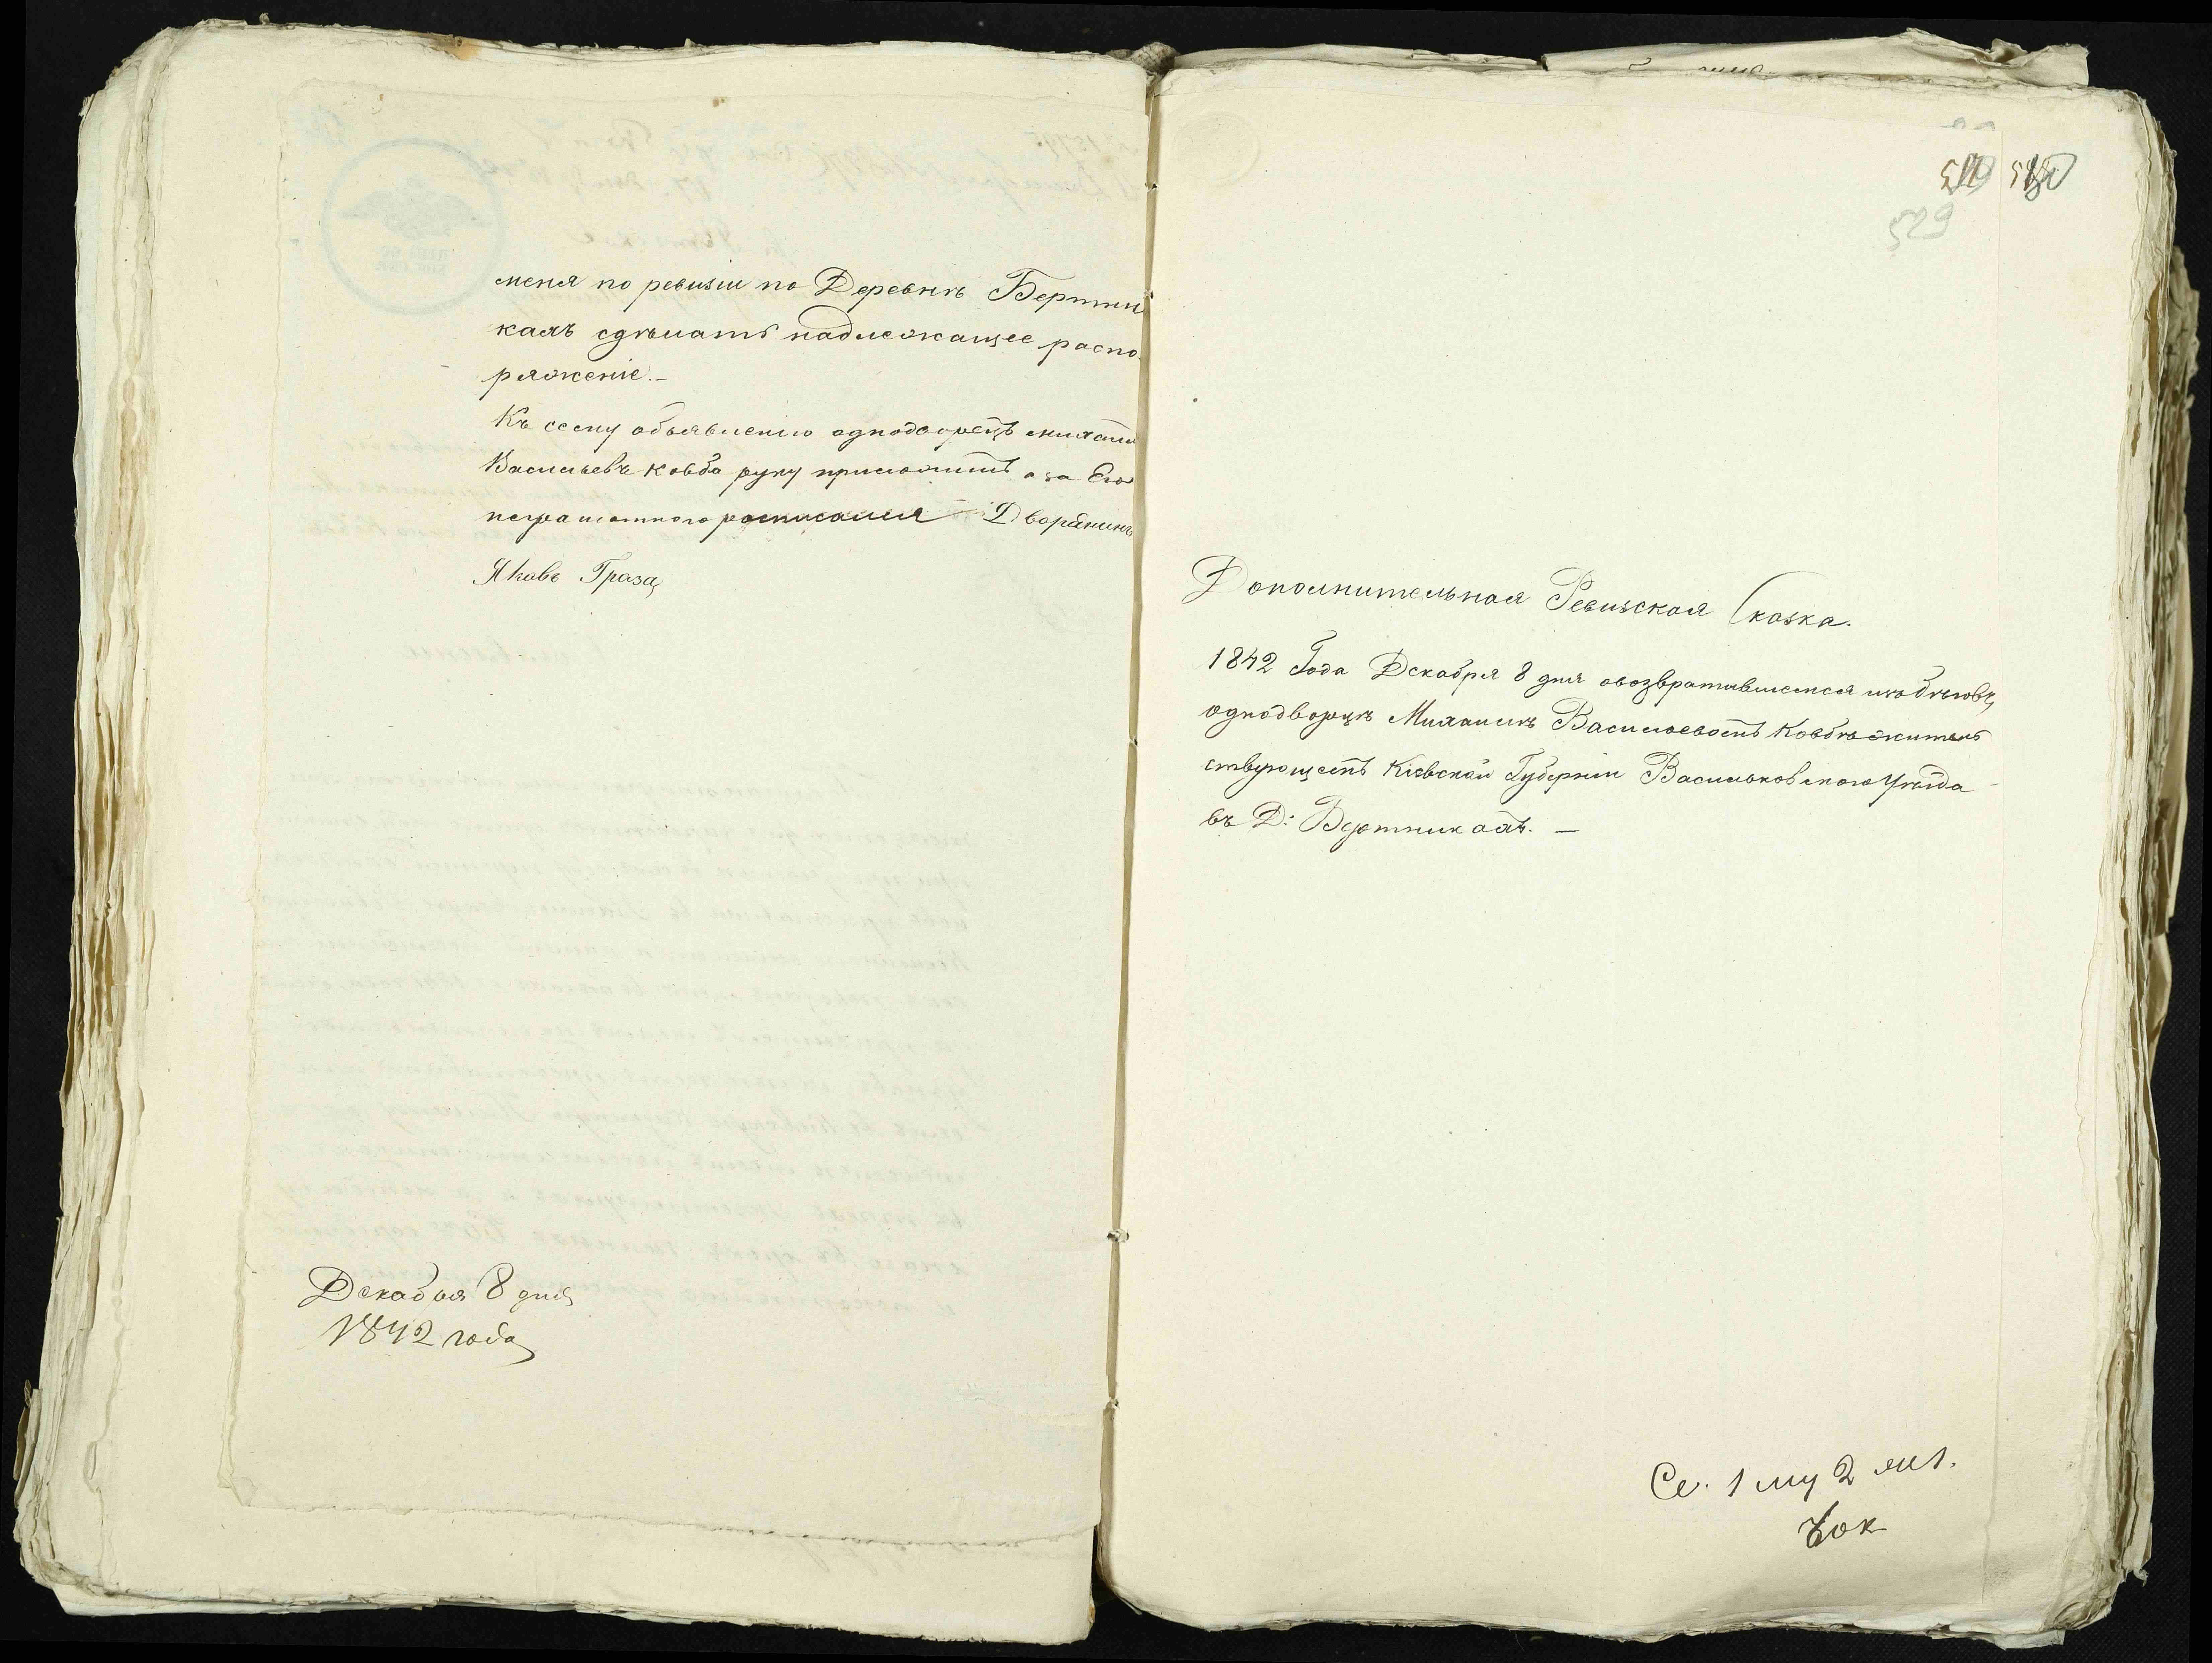 меня по ревизіи по Деревнѣ Бертни
кахъ сдѣлать надлежащее распо
ряженіе.—
Къ сему объявленію однодворецъ михаилъ
Васильевъ Ковба руку приложилъ а за Его
неграмотного росписался Дворянинъ
Яковъ Граза
Декабря 8 дня
1842 года
529
Дополнительная Ревизская Сказка.
1842 Года Декабря 8 дня овозвратившемся изъ бѣговъ
однодворцѣ Михаилѣ Васильевомъ Ковбѣ житель
ствующемъ Кіевской Губерніи Васильковского Уѣзда
въ Д: Вертникахъ. —
1 му 2